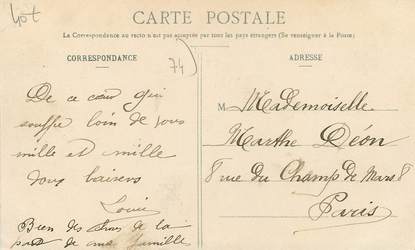 Lot
CARTE POSTALE
La Correspondance au recto n'est pas acceptée par tous les pays étrangers (Se renseigner à la Poste)
CORRESPONDANCE
ADRESSE
74
De ce cœur qui
souffre loin de vous
mille et mille
doux baisers
Louis
Bien des de la
part de ma famille
M. Mademoiselle
Marthe Déon
8 rue du Champ de Mars 8
Paris